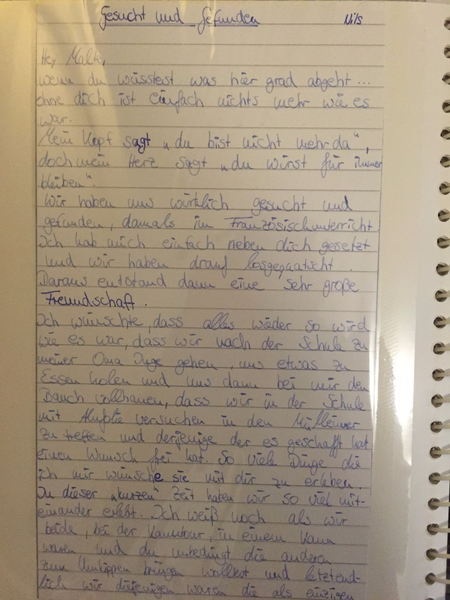 Gesucht und Gefunden Nils
Hey Malte,
wenn du wüsstest was hier grad abgeht...
ohne dich ist einfach nichts mehr wie es
war.
Mein Kopf sagt „du bist nicht mehr da",
doch mein Herz sagt „du wirst für immer
bleiben".
Wir haben uns wirklich gesucht und
gefunden, damals im Französischunterricht
Ich hab mich einfach neben dich gesetzt
und wir haben drauf losgequatscht
Daraus entstand dann eine sehr große
Freundschaft.
Ich wünschte, dass alles wieder so wird
wie es war, dass wir nach der Schule zu
meiner Oma Inge gehen, uns etwas zu
Essen holen und uns dann bei mir den
Bauch vollhauen, dass wir in der Schule
mit versuchen in den Mülleimer
zu treffen und derjenige der es geschafft hat
einen Wunsch frei hat. So viele Dinge die
ich mir wünsche sie mit dir zu erleben.
In dieser „kurzen" Zeit haben wir so viel mit-
einander erlebt. Ich weiß noch als wir
beide, bei der Kanutour, in einem Kanu
waren und du unbedingt die anderen
zum Umkippen bringen wolltest und letztend-
lich wir diejenigen waren die als einzigen